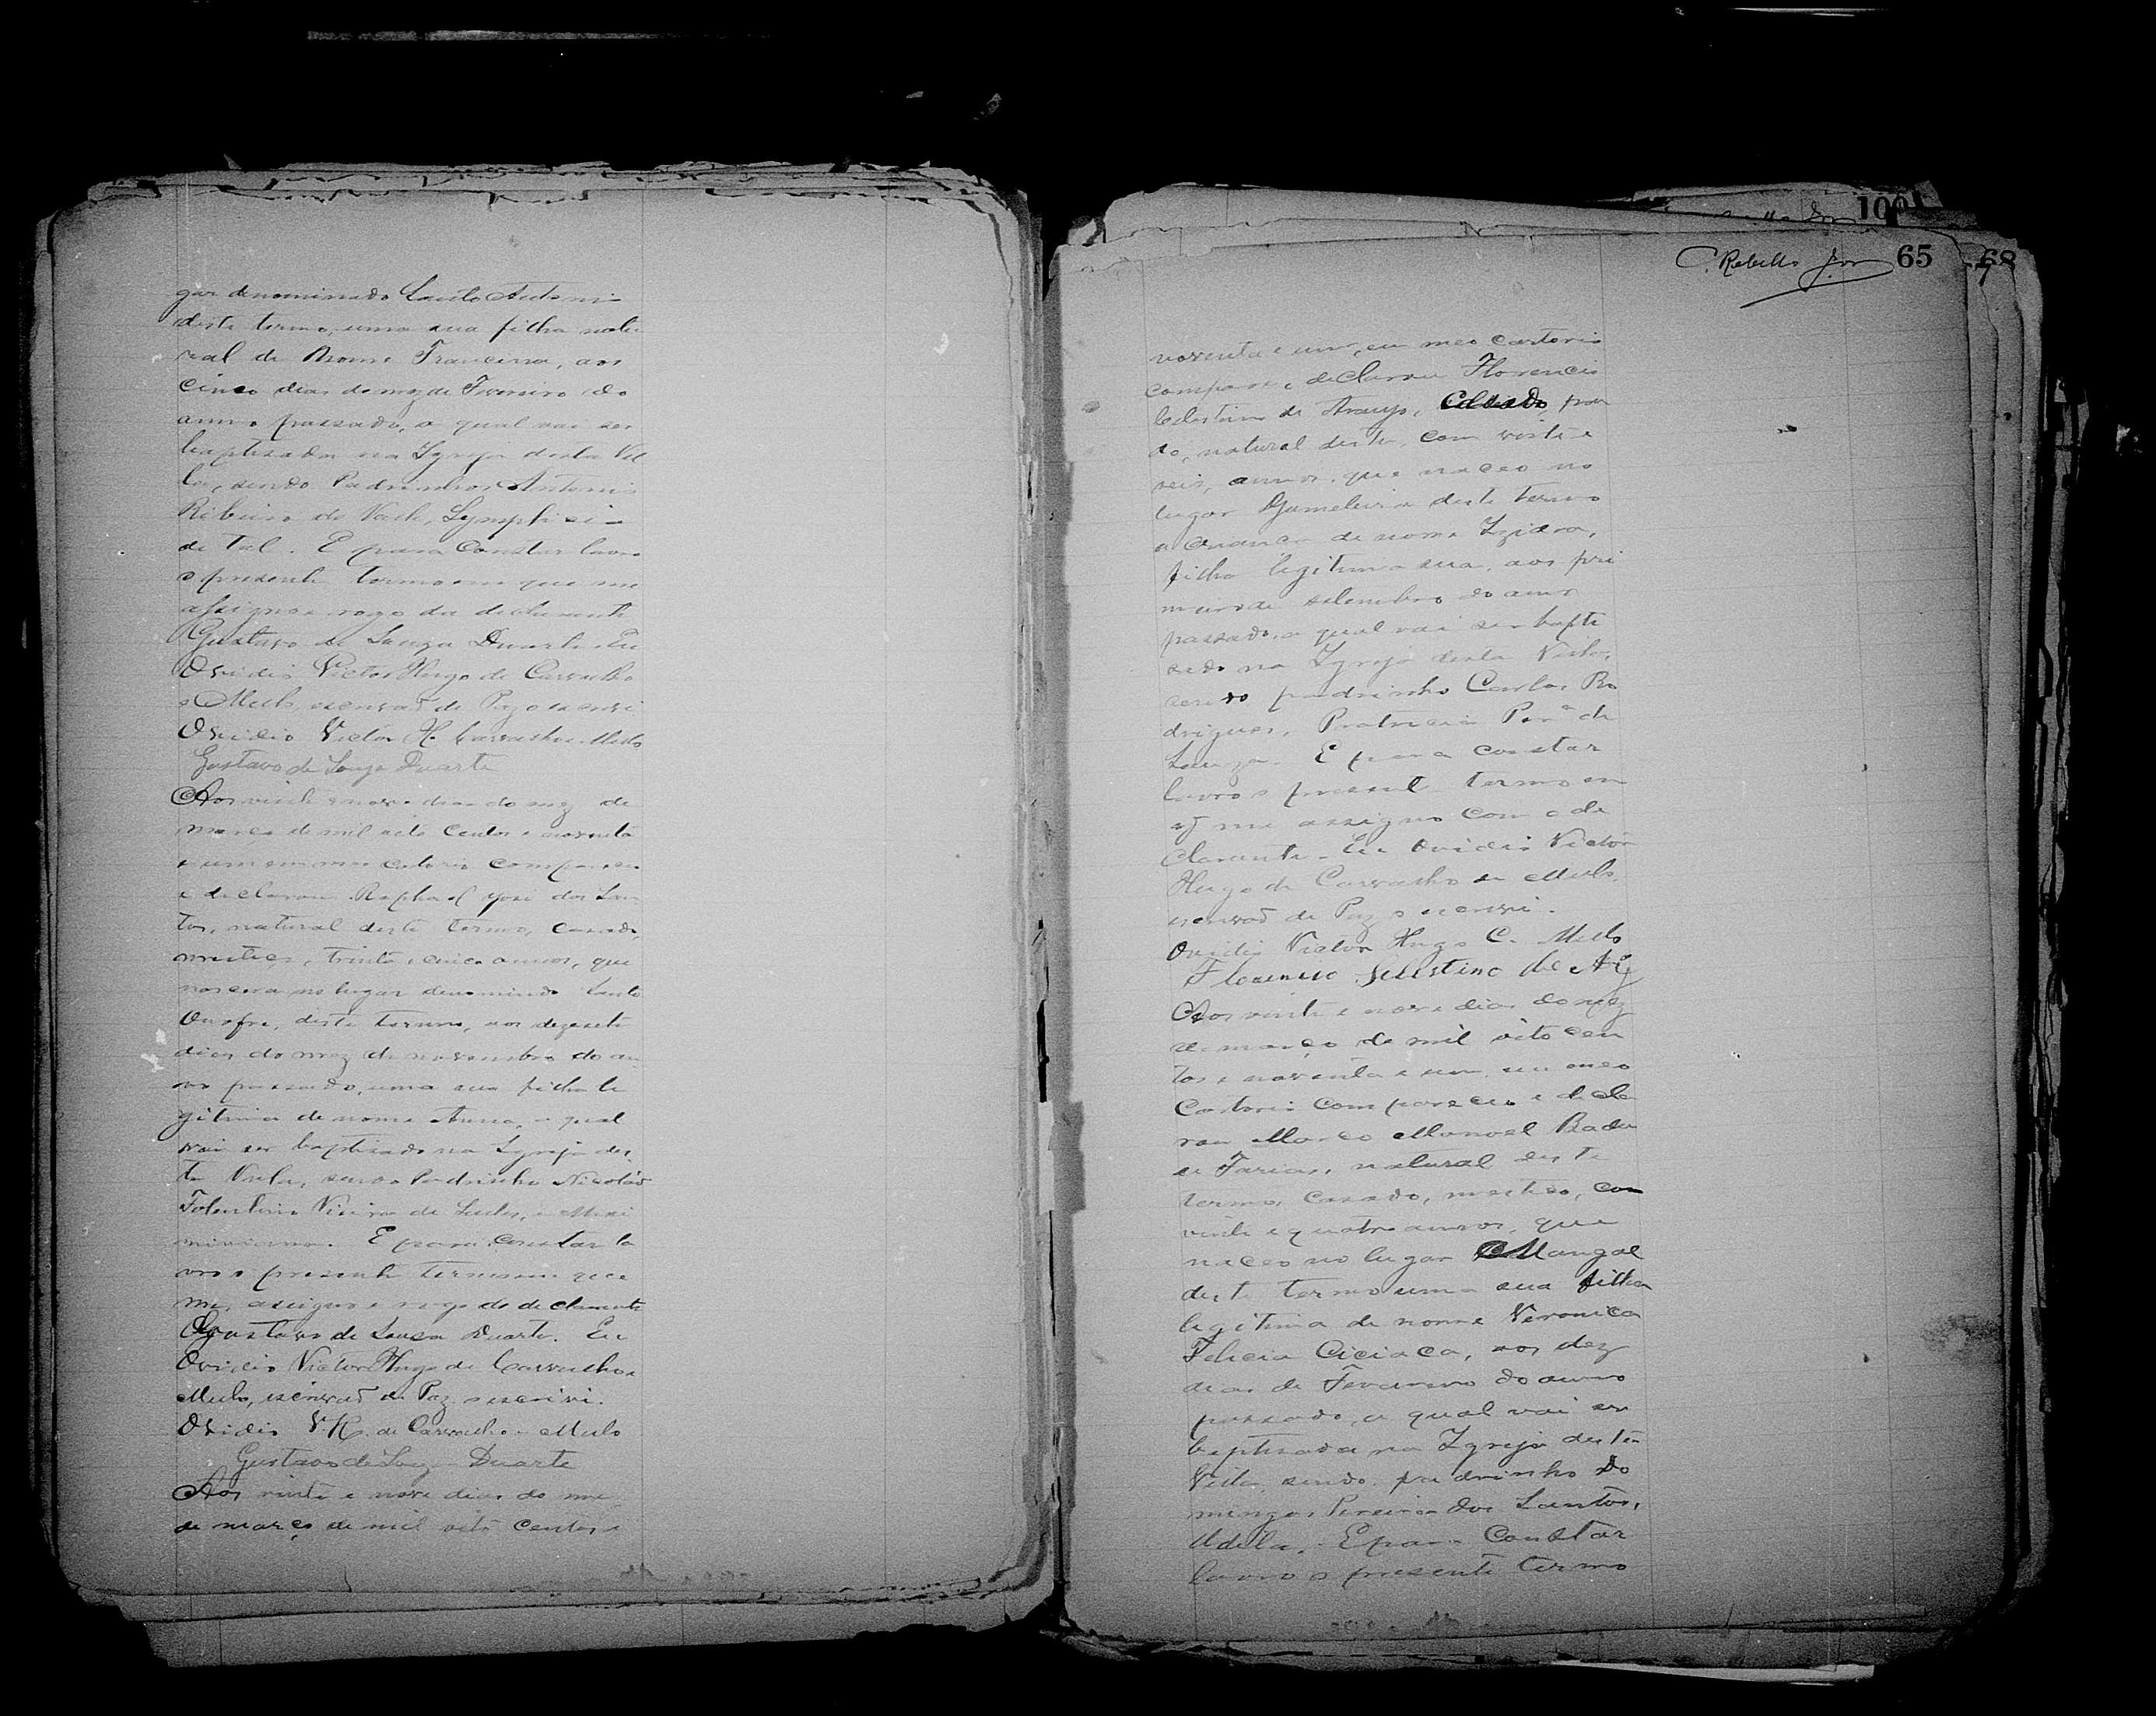 gar denominado Santo Antonio
deste termo, uma sua filha natu
ral de Nome Francisca, aos
cinco dias do mez de Fevereiro do
anno passado, a qual vai ser
baptisada na Igreja desta Vil
la, sendo Padrinhos Antonio
Ribeiro do Valle,
de Tal. E para constar lavro
o presente termo em que me
assigno a rogo da declarante
Gustavo de Souza Duarte. Eu
Ovidio Victor Hugo de Carvalho
e Mello, escrivaõ de Paz o escrevi
Ovidio Victor H. Carvalho e Mello
Gustavo de Souza Duarte
Aos vinte e nove dias do mez de
março de mil oito centos e noventa
e um em meo cartorio compareceu
e declarou Raphael José dos San
tos, natural deste termo, casado,
mestiço, trinta e cinco annos, que
nascera no lugar denominado Santo
Onofre, deste termo, aos dezesete
dias do mez de novembro do an
no passado, uma sua filha le
gitima de nome Anna, a qual
vai ser baptisada na Igreja des
ta Villa, sendo Padrinho Nicoláo
Tolentino Vieira de
E para constar la
vro o presente termo em que
me assigno a rogo do declarante
Gustavo de Souza Duarte. Eu
Ovidio Victor Hugo de Carvalho e
Mello, escrivaõ de Paz o escrevi.
Ovidio V. H. de Carvalho e Mello
Gustavo de Souza Duarte
Aos vinte e nove dias do mez
de março de mil oito centos e
C. Rebello Jor 65 68
100
noventa e um, em meo cartorio
compareceu e declarou Florencio
Celestino de Araujo, par
do, natural deste, com vinte e
seis annos, que naceo no
lugar Gameleira deste termo
a creança de nome Izidra,
filha legitima sua, aos pri
meiro de setembro do anno
passado, a qual vai ser bapti
sada na Igreja desta Villa,
sendo padrinho Carlos Ro
drigues, Patricia Perª de
Souza. E para constar
lavro o presente termo em
q me assigno com o de
clarante. Eu Ovidio Victor
Hugo de Carvalho e Mello,
escrivaõ de Paz o escrevi.
Ovidio Victor Hugo C. Mello
Florencio Selestino de
Aos vinte e nove dias do mez
de março de mil oito cen
tos e noventa e um, em meo
Cartorio compareceu e decla
rou Manoel
de Farias, natural deste
termo, casado, mestiço, com
vinte e quatro annos, que
naceo no lugar Mangal
deste termo uma sua filha
legitima de nome Veronica
Felicia Ciciaca, aos dez
dias de Fevereiro do anno
passado, a qual vai ser
baptisada na Igreja desta
Villa, sendo padrinho Do
mingos Pereira dos Santos,
Adela. E para Constar
lavro o presente termo